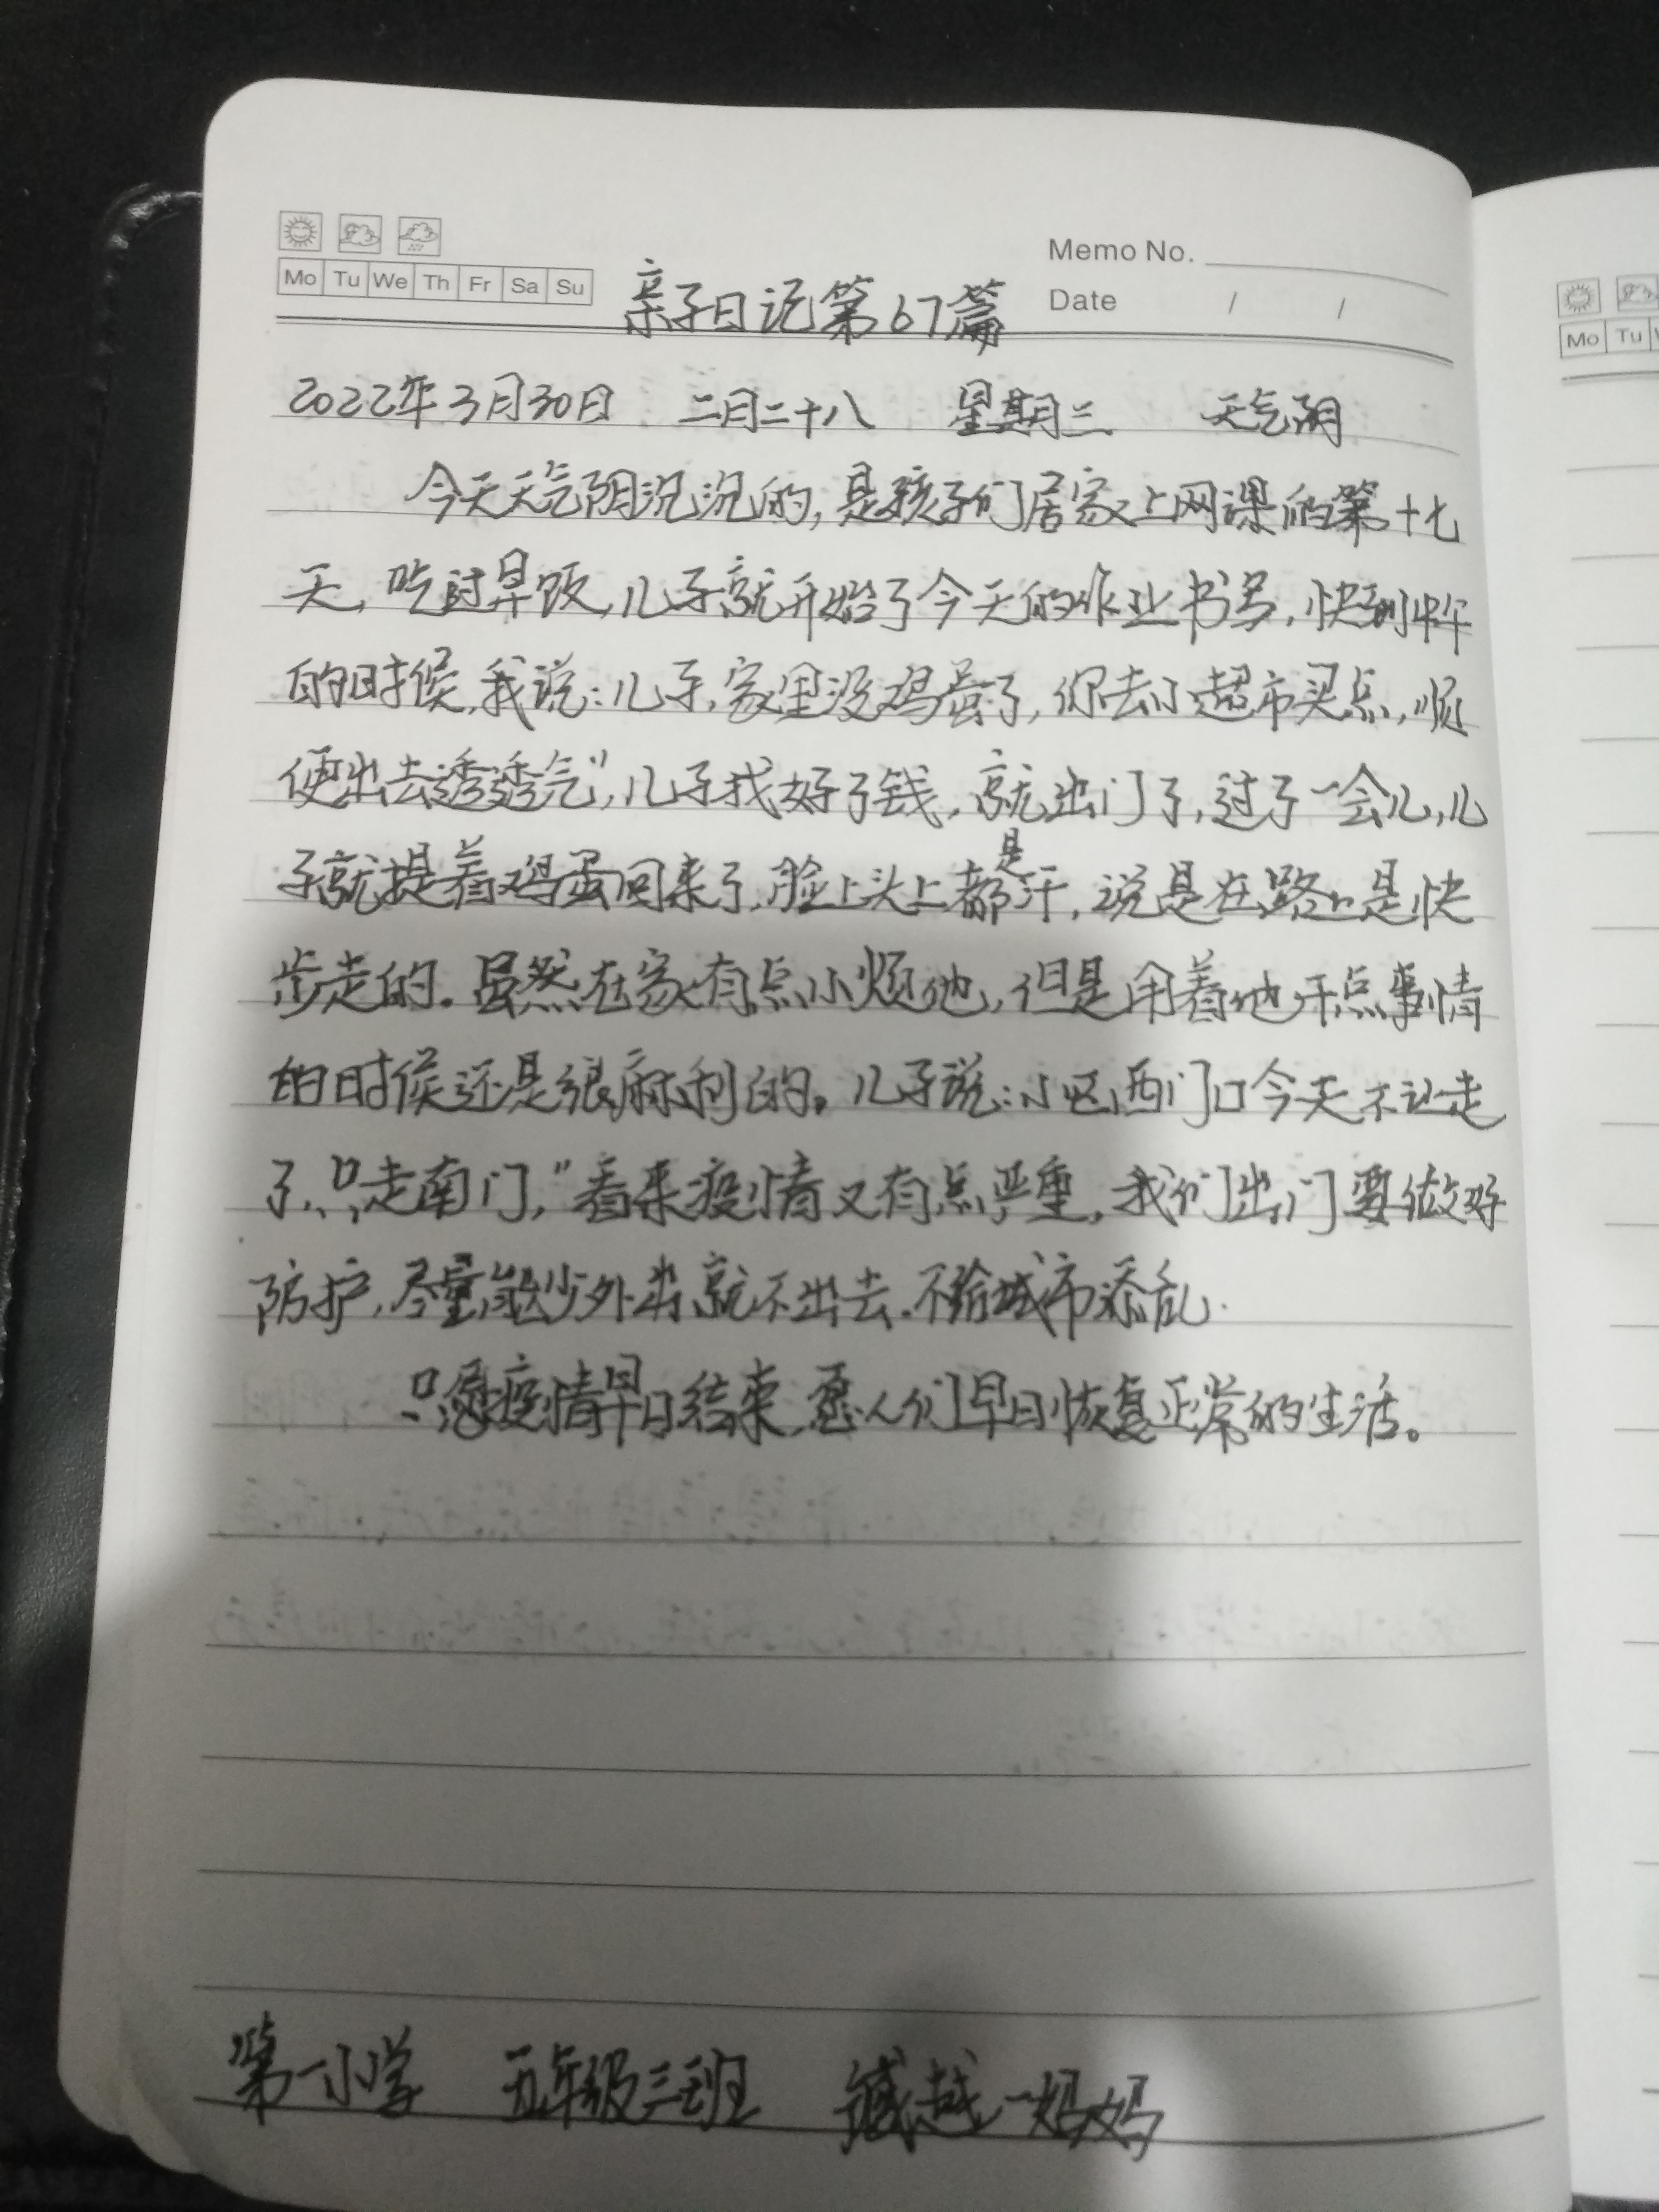 Memo No.
Mo Tu We Th Fr Sa Su
Date / /
亲子日记第67篇
2022年3月30日 二月二十八 星期三 天气阴
今天天气阴沉沉的,是孩子们居家上网课的第十七
天,吃过早饭,儿子就开始了今天的作业书写,快到中午
的时候,我说:儿子,家里没鸡蛋了,你去小超市买点,顺
便出去透透气",儿子找好了钱,就出门了,过了一会儿,儿
子就提着鸡蛋回来了,脸上头上都是汗,说是在路上是快
步走的。虽然在家有点小烦他,但是用着他干点事情
的时候还是很麻利的。儿子说:小区西门口今天不让走
了,只走南门,"看来疫情又有点严重,我们出门要做好
防护,尽量能少外出就不出去.不给城市添乱.
只愿疫情早日结束,愿人们早日恢复正常的生活。
第一小学 五年级三班 越一妈妈
Mo Tu